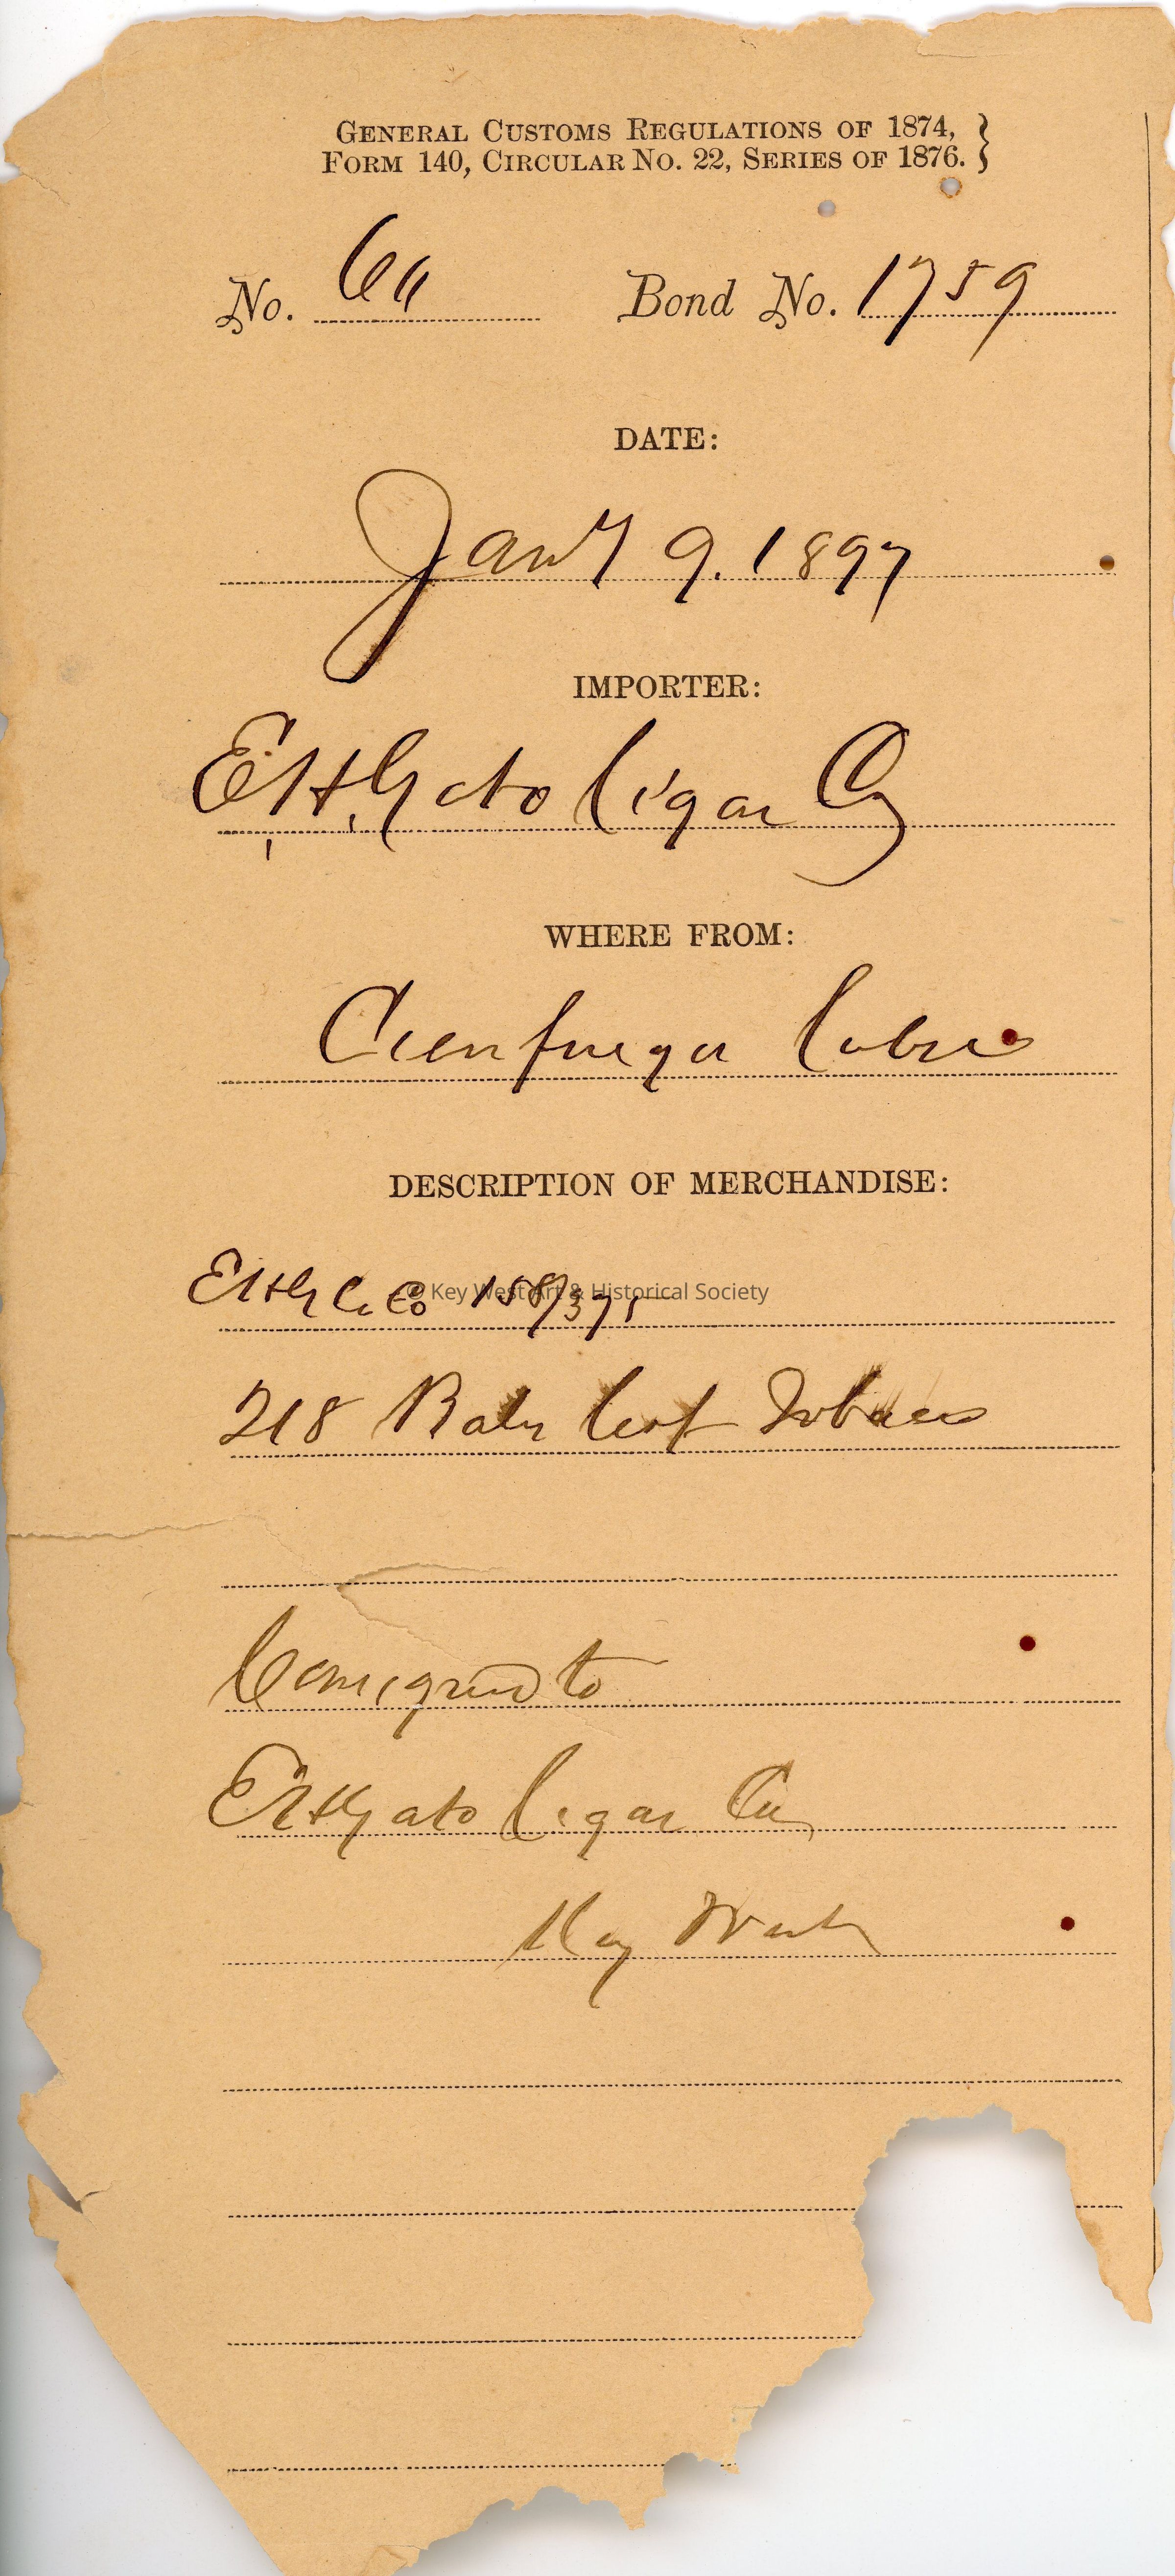 GENERAL CUSTOMS REGULATIONS OF 1874, }
FORM 140, CIRCULAR NO. 22, SERIES OF 1876.
No. 66 Bond No. 1759
DATE:
Jany 9. 1897
IMPORTER:
E.H. Gato Cigar Co
WHERE FROM:
Cienfuegos Cuba
DESCRIPTION OF MERCHANDISE:
EHG C. Co 158/375
© Key West Art & Historical Society
218 Bales leaf Tobacco
Consigned to
EHGato Cigar Co
Key West